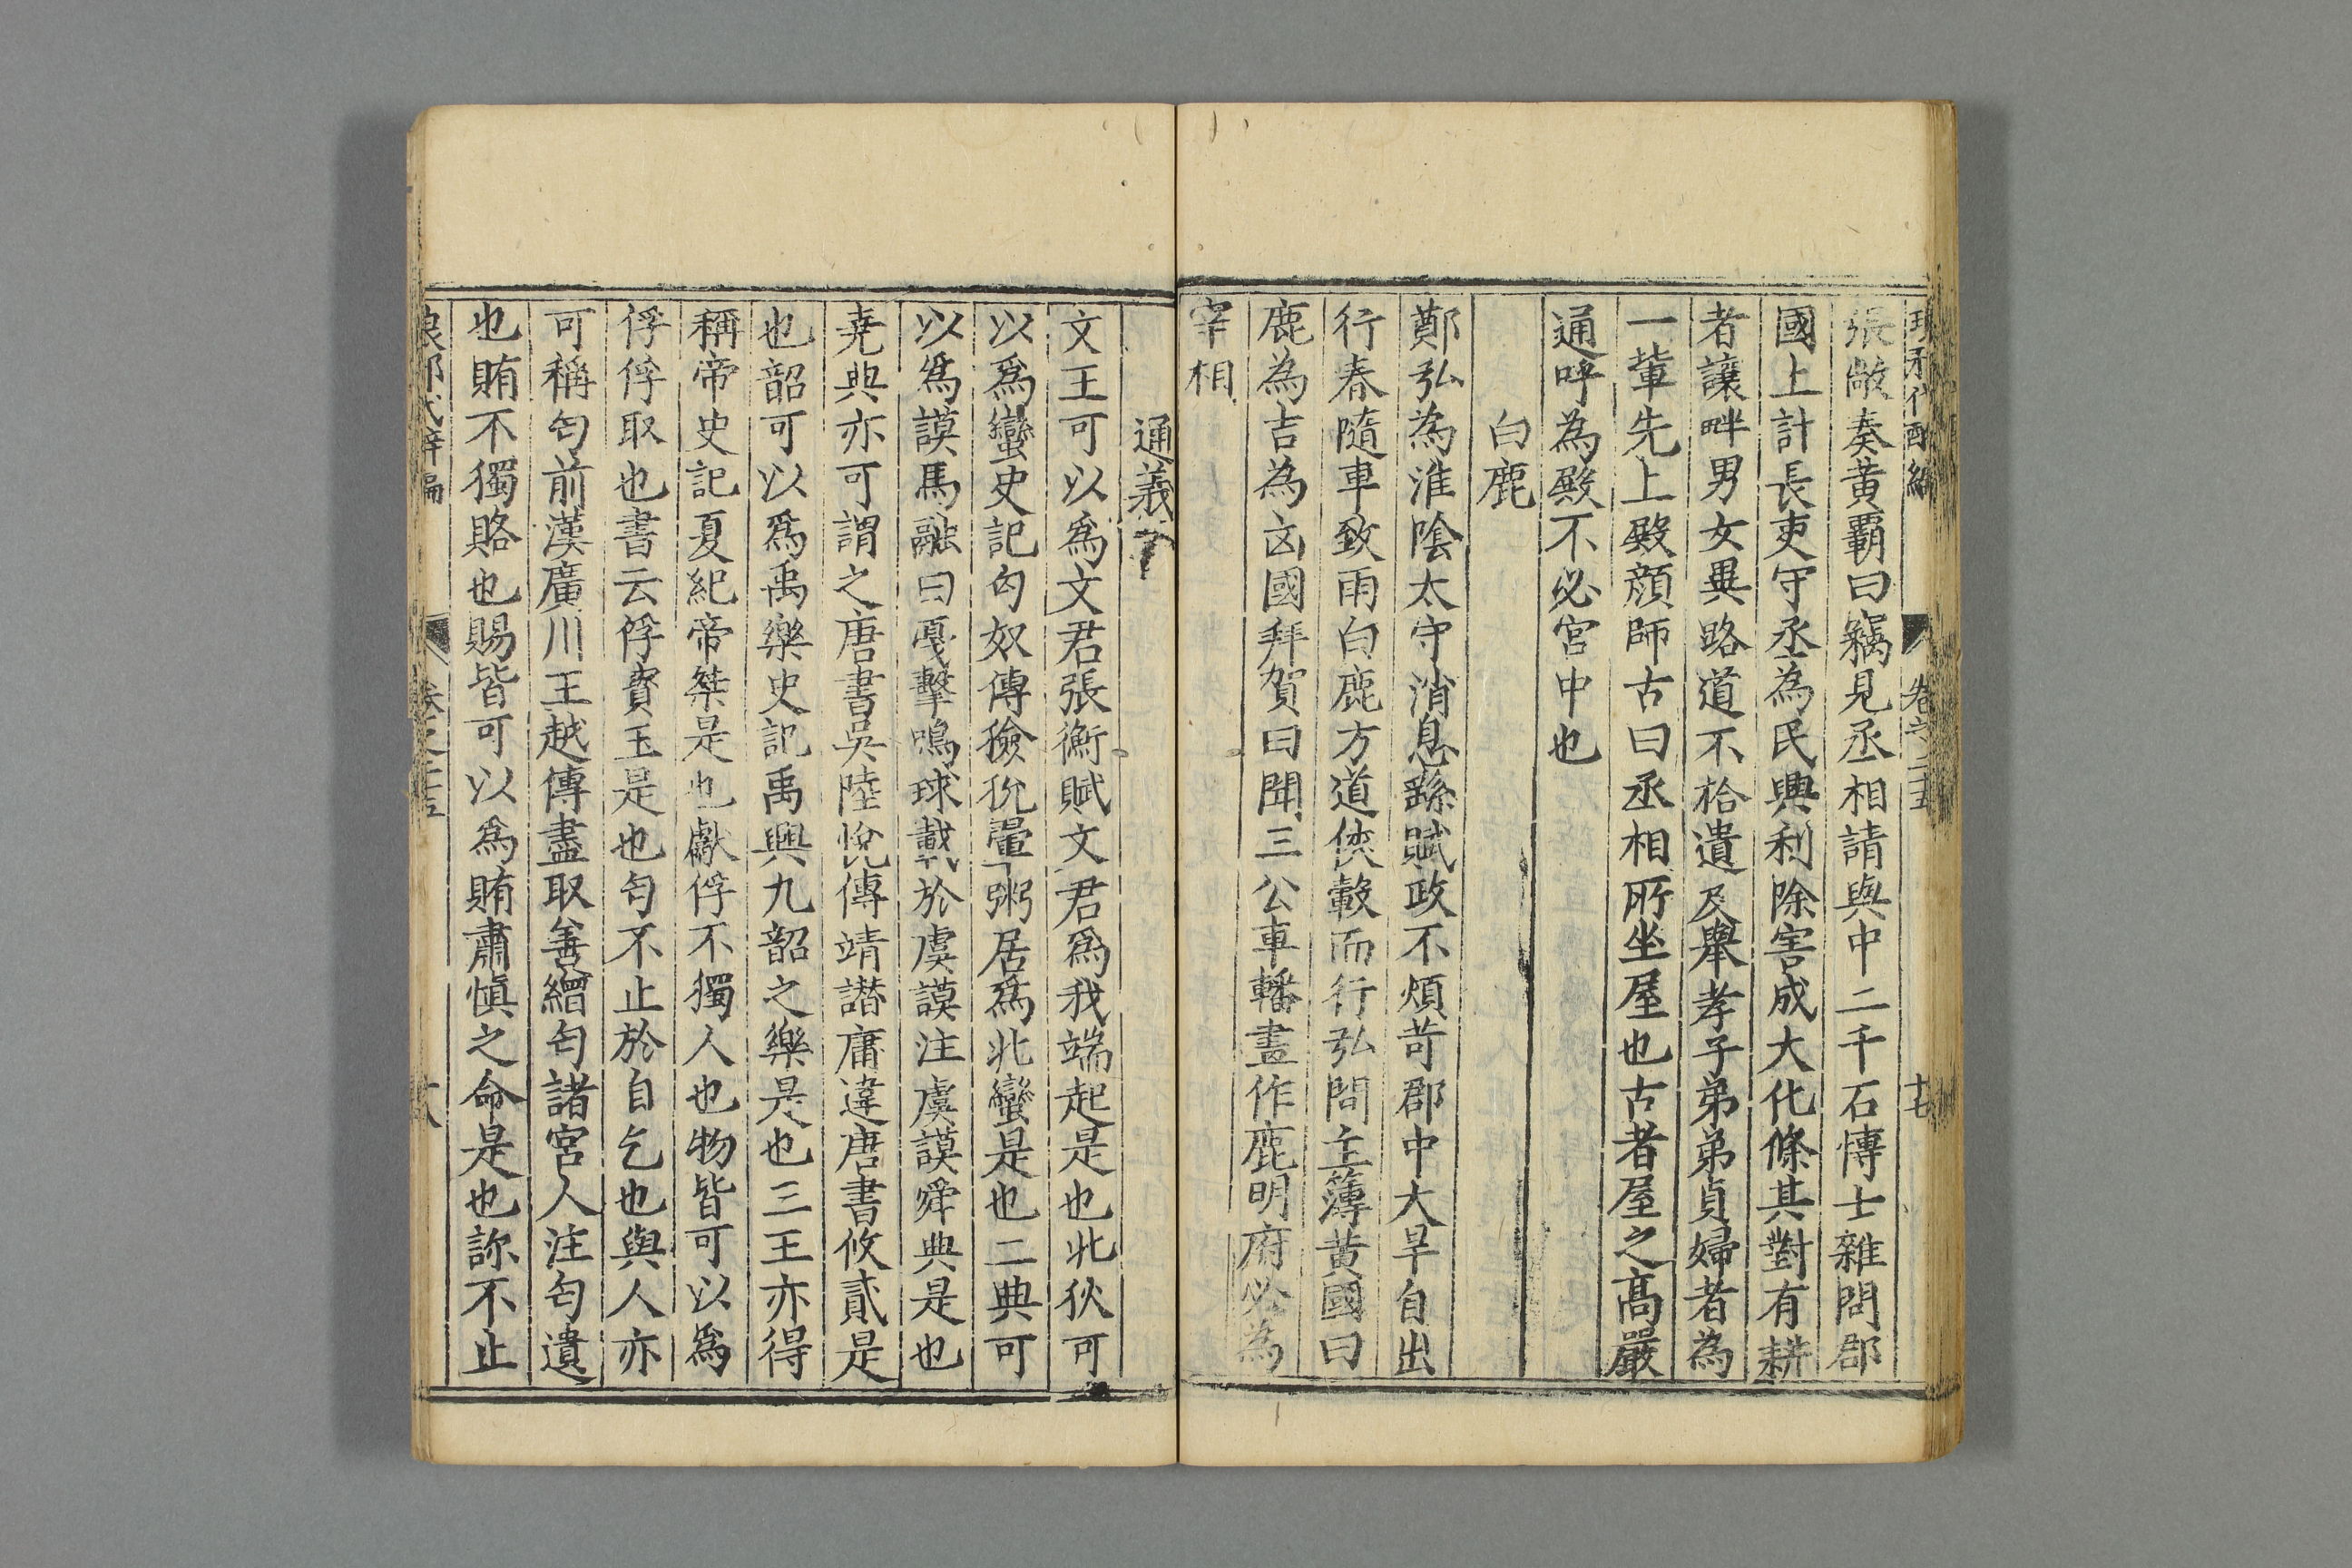 張敞奏黄覇曰竊見丞相請與中二千石博士雜問郡
國上計長吏守丞為民興利除害成大化條其對有耕
者讓畔男女異路道不拾遺及舉孝子弟弟貞婦者為
一輩先上殿顏師古曰丞相所坐屋也古者屋之高嚴
通呼為殿不必宮中也
白鹿
鄭弘為淮陰太守消息繇賦政不煩苛郡中大旱自出
行春隨車致雨白鹿方道俠轂而行弘問主簿黄國曰
鹿為吉為凶國拜賀曰聞三公車轓畫作鹿明府必為
宰相
通義字
文王可以爲文君張衡賦文君爲我端起是也北狄可
以爲蠻史記匈奴傳獫狁葷粥居爲北蠻是也二典可
以爲謨馬融曰戛擊鳴球載於虞謨注虞謨舜典是也
堯典亦可謂之唐書吳陸恱傳靖譖庸違唐書攸貳是
也韶可以爲禹樂史記禹興九韶之樂是也三王亦得
稱帝史記夏紀帝桀是也獻俘不獨人也物皆可以爲
俘俘取也書云俘寳玉是也匄不止於自乞也與人亦
可稱匄前漢廣川王越傳盡取善繒匄諸宮人注匄遺
也賄不獨賂也賜皆可以爲賄肅愼之命是也諒不止
卷之二十五